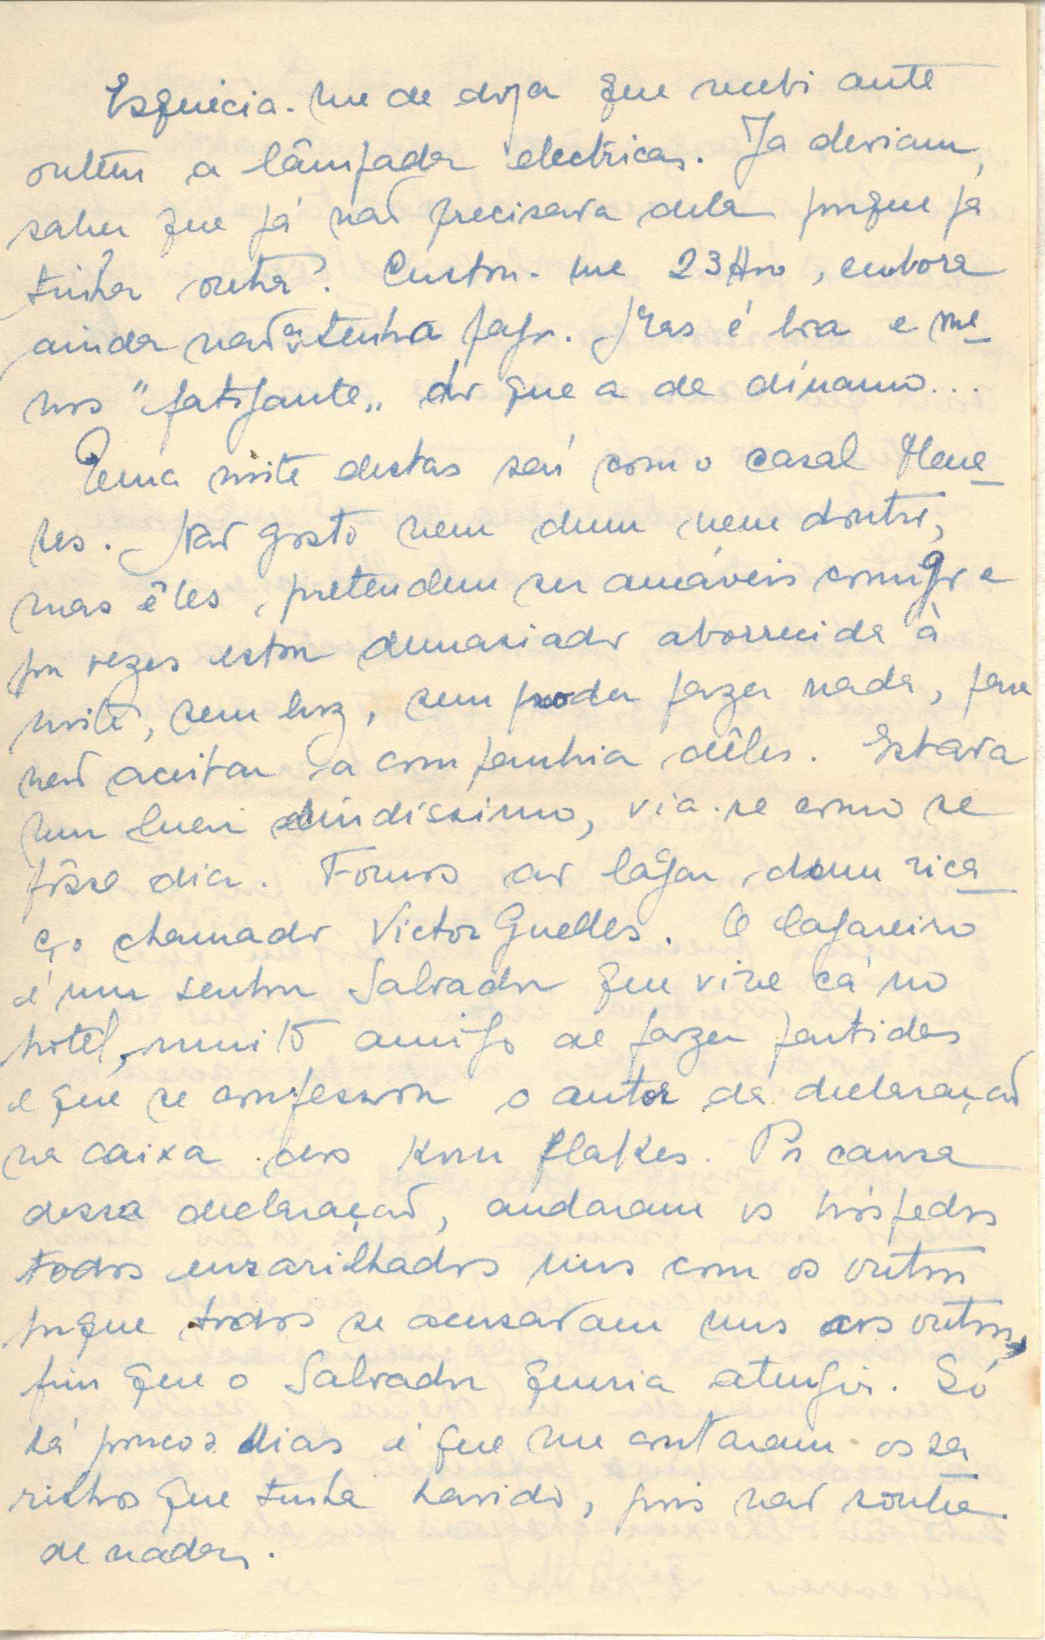 Esquecia-me de dizer que recebi ante
ontem a lâmpada electrica. Ja deviam
saber que já não precisava dela porque já
tinha outra? Custou-me 23$00, embora
ainda não a tenha pago. Mas é boa e me-
nos "fatigante" do que a de dínamo...
Uma noite destas saí com o casal Mene-
zes. Não gosto nem dum nem doutro,
mas êles pretendem ser amáveis comigo e
por vezes estou demasiado aborrecida à
noite, sem luz, sem poder fazer nada, para
não aceitar a companhia dêles. Estava
um luar lindissimo, via-se como se
fôsse dia. Fomos ao lagar dum rica-
ço chamado Victor Guedes. O lagareiro
é um senhor Salvador que vive cá no
hotel, muito amigo de fazer partidas
e que se confessou o autor da declaração
na caixa dos Korn flakes. Por causa
dessa declaração, andaram os hóspedes
todos ensarilhados uns com os outros
porque todos se acusavam uns aos outros,
fim que o Salvador queria atingir. Só
há poucos dias é que me contaram os sa-
rilhos que tinha havido, pois não soube
de nada.